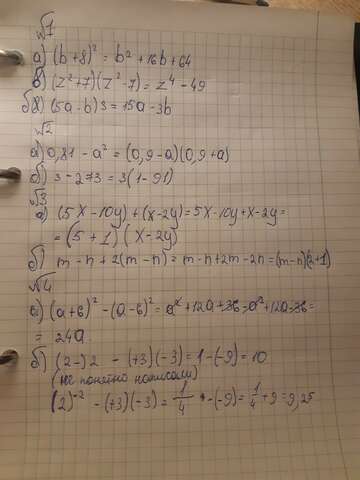 №1
а) (b+8)² = b² + 16b + 64
в) (z²+7)(z²-7) = z⁴ - 49
б) (5a-b)3 = 15a-3b
№2
а) 0,81 - a² = (0,9-a)(0,9+a)
б) 3 - 273 = 3(1-91)
№3
а) (5x-10y)+(x-2y)=5x-10y+x-2y=
= (5+1)(x-2y)
б) m-n+2(m-n)=m-n+2m-2n=(m-n)(2+1)
№4
а) (a+6)²-(a-6)²=a²+12a+36-a²+12a-36=
= 24a
б) (2-)2 - (+3)(-3)=1-(-9)=10
(не понятно написали)
(2)⁻² - (+3)(-3) = 1/4 - (-9) = 1/4 + 9 = 9,25